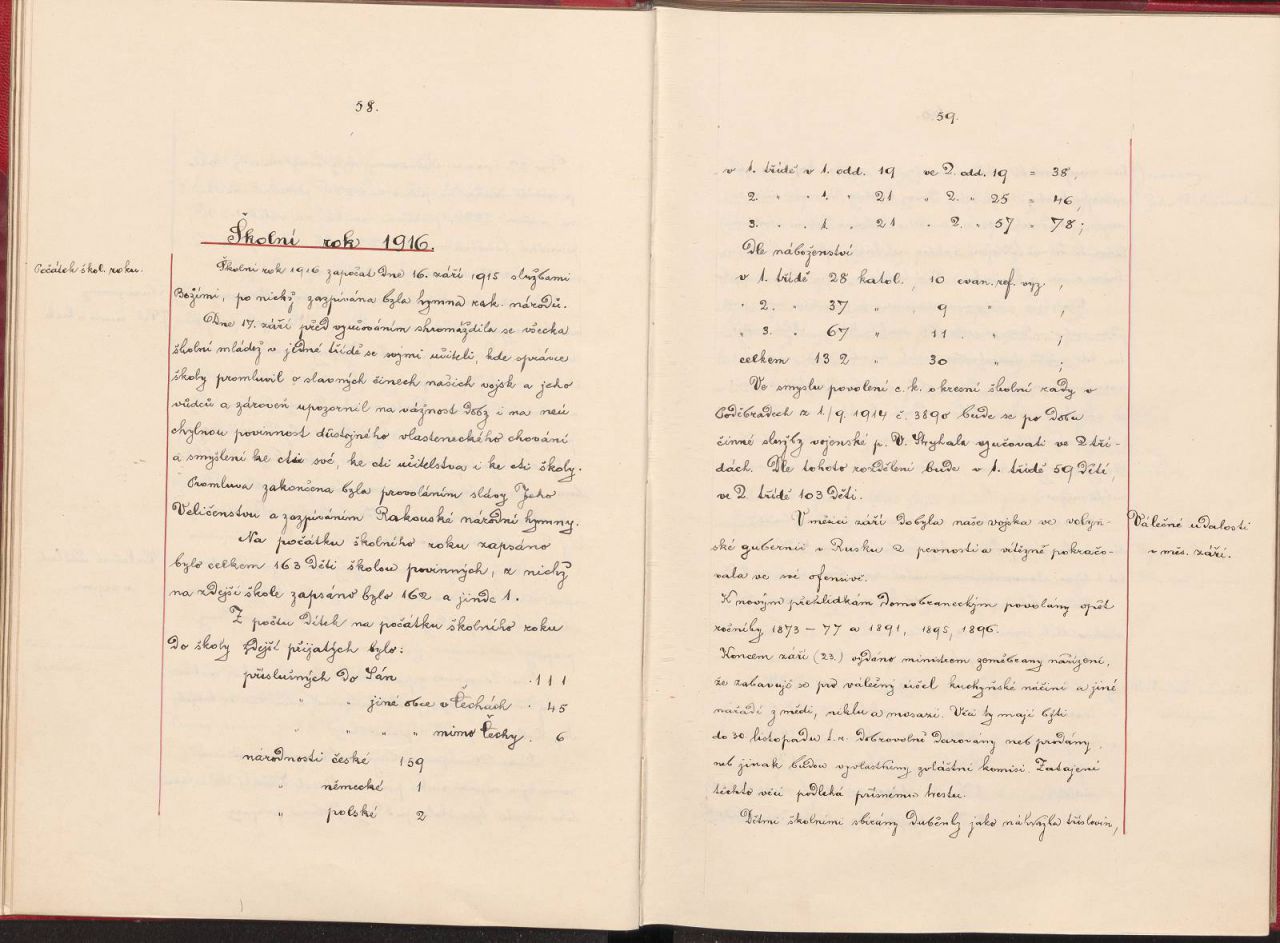 58.
Školní rok 1916.
Počátek škol. roku.
Školní rok 1916 započat dne 16. září 1915 službami
Božími, po nichž zazpívána byla hymna rak. národů.
Dne 17. září před vyučováním shromáždila se všecka
školní mládež v jedné třídě se svými učiteli, kde správce
školy promluvil o slavných činech našich vojsk a jeho
vůdců a zároveň upozornil na vážnost doby i na neú
chylnou povinnost důstojného vlasteneckého chování
a smýšlení ke cti své, ke cti učitelstva i ke cti školy.
Promluva zakončena byla provoláním slávy Jeho
Veličenstvu a zazpíváním Rakouské národní hymny.
Na počátku školního roku zapsáno
bylo celkem 163 dětí školou povinných, z nichž
na zdejší škole zapsáno bylo 162 a jinde 1.
Z počtu dítek na počátku školního roku
do školy zdejší přijatých bylo:
příslušných do Sán 111
" " jiné obce v Čechách . 45
" " " " mimo Čechy . 6
národnosti české 159
" německé 1
" polské 2
59.
v 1. třídě v 1. odd. 19 ve 2. odd. 19 = 38,
2. " " 1. " 21 " 2. " 25 = 46,
3. " " 1. " 21 " 2. " 57 = 78;
Dle náboženství
v 1. třídě 28 katol., 10 evan. ref. vyz.,
" 2. " 37 " 9 " ;
" 3. " 67 " 11 " ;
celkem 132 " 30 " ;
Ve smyslu povolení c. k. okresní školní rady v
Poděbradech z 1./9. 1914 č. 3890 bude se po dobu
činné služby vojenské p. V. Stryhala vyučovati ve 2 tří-
dách. Dle tohoto rozdělení bude v 1. třídě 59 dětí,
ve 2. třídě 103 děti.
Válečné udalosti
v měs. září.
V měsíci září dobyla naše vojska ve volyň-
ské gubernii v Rusku 2 pevnosti a vítězně pokračo-
vala ve své ofensivě.
K novým přehlídkám domobraneckým povolány opět
ročníky 1873 – 77 a 1891, 1895, 1896.
Koncem září (23.) vydáno ministrem zeměbrany nařízení,
že zabavují se pro válečný účel kuchyňské náčiní a jiné
nářadí z mědi, niklu a mosazi. Věci ty mají býti
do 30 listopadu t. r. dobrovolně darovány neb prodány,
neb jinak budou vyvlastněny zvláštní komisí. Zatajení
těchto věcí podléhá přísnému trestu.
Dětmi školními sbírány duběnky jako náhražka tříslovin,